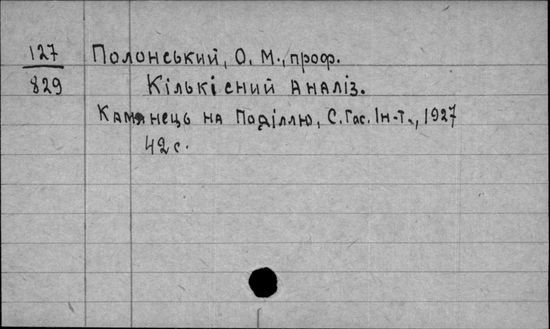 127 Полонський, О. М., проф.
829 Кількісний аналіз.
Камянець на Поділлю, С. Гос. Ін-т., 1927
42 с.